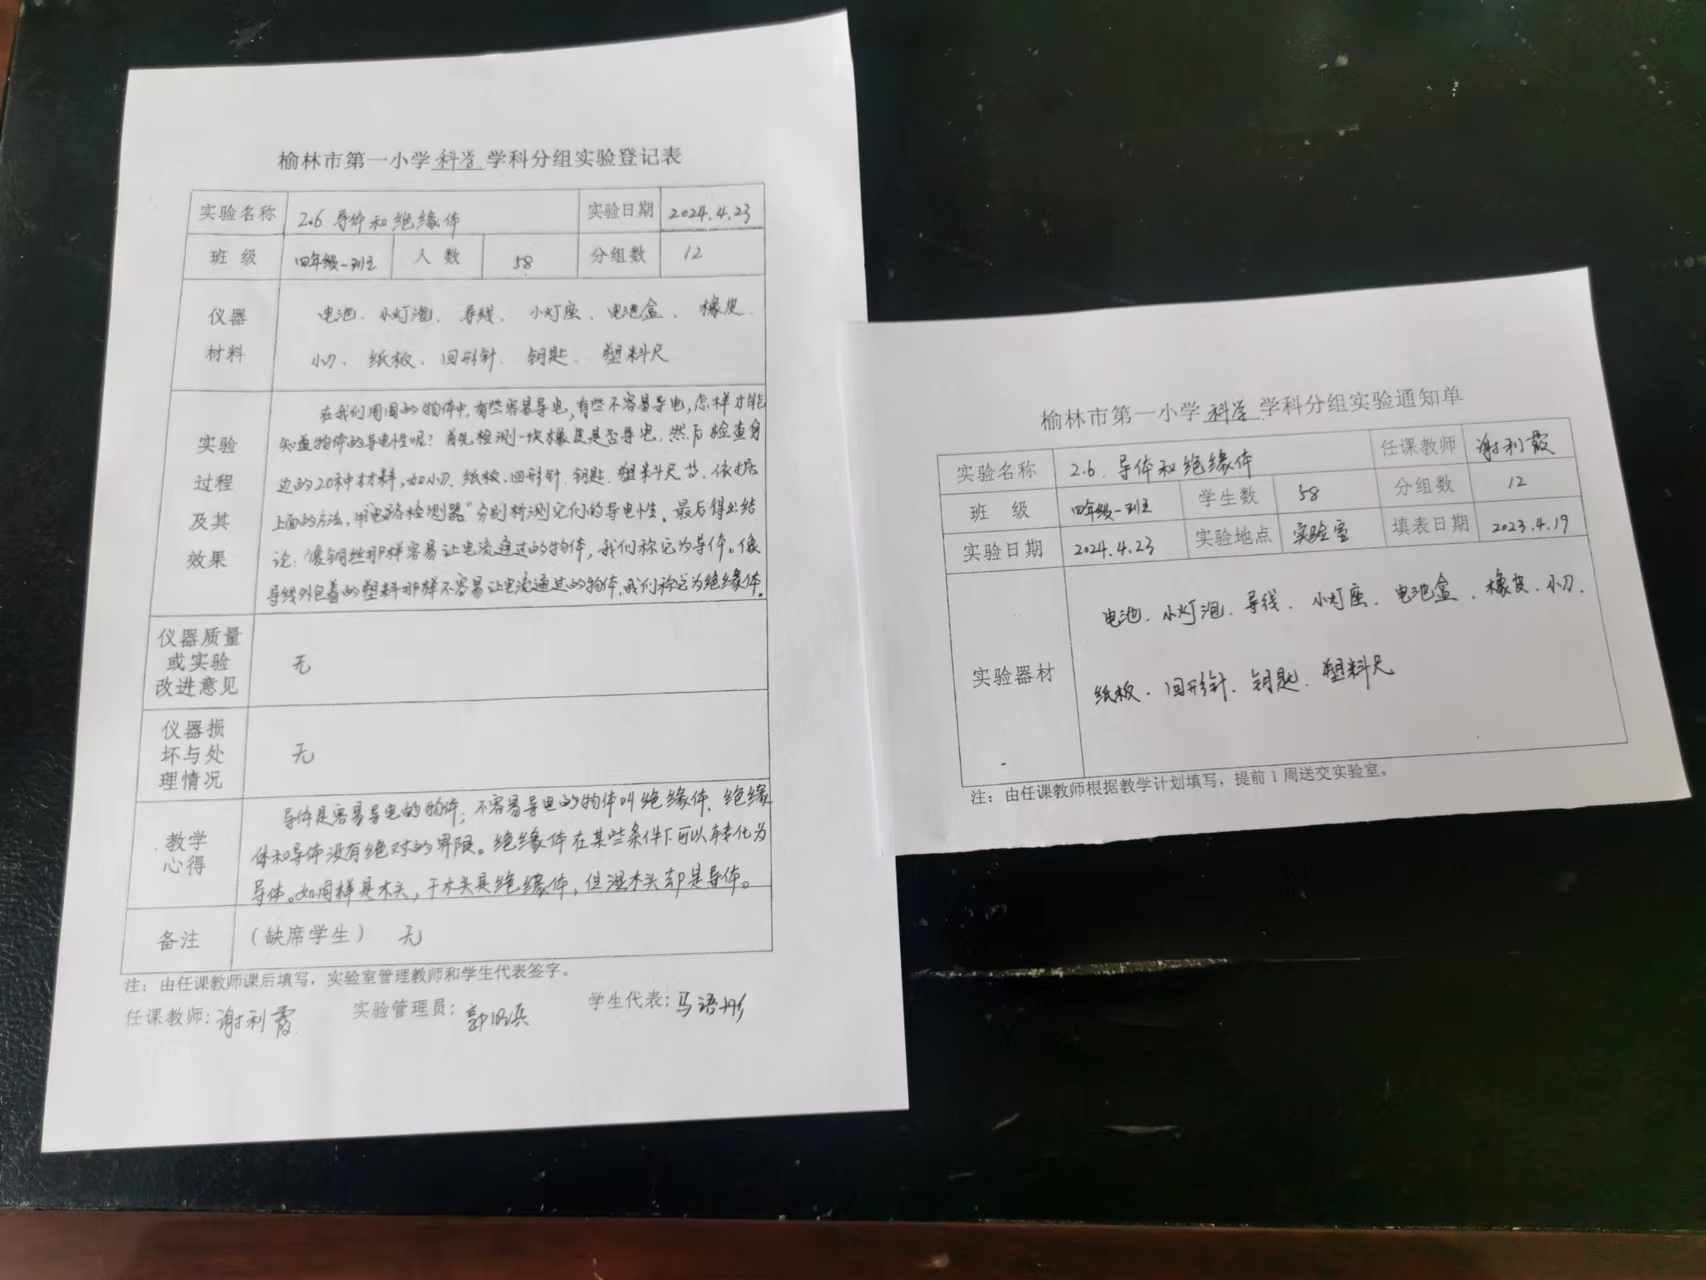 榆林市第一小学 科学 学科分组实验登记表
实验名称 2.6 导体和绝缘体 实验日期 2024.4.23
班 级 四年级一班 人 数 58 分组数 12
仪器 电池、小灯泡、导线、小灯座、电池盒、橡皮、
材料 小刀、纸板、回形针、钥匙、塑料尺
在我们周围的物体中,有些容易导电,有些不容易导电,怎样才能
实验 知道物体的导电性呢?首先检测一块橡皮是否导电,然后检查身
过程 边的20种材料,如小刀、纸板、回形针、钥匙、塑料尺等,依据
及其 上面的方法,用"电路检测器"分别检测它们的导电性。最后得出结
效果 论:像铜丝那样容易让电流通过的物体,我们称它为导体。像
导线外包着的塑料那样不容易让电流通过的物体,我们称它为绝缘体。
仪器质量
或实验 无
改进意见
仪器损
坏与处 无
理情况
导体是容易导电的物体;不容易导电的物体叫绝缘体。绝缘
教学 体和导体没有绝对的界限。绝缘体在某些条件下可以转化为
心得 导体。如同样是木头,干木头是绝缘体,但湿木头却是导体。
备注 (缺席学生) 无
注:由任课教师课后填写,实验室管理教师和学生代表签字。
任课教师:谢利霞 实验管理员: 学生代表:马语彤
榆林市第一小学 科学 学科分组实验通知单
实验名称 2.6.导体和绝缘体 任课教师 谢利霞
班 级 四年级一班 学生数 58 分组数 12
实验日期 2024.4.23 实验地点 实验室 填表日期 2023.4.19
电池、小灯泡、导线、小灯座、电池盒、橡皮、小刀、
实验器材 纸板、回形针、钥匙、塑料尺
注:由任课教师根据教学计划填写,提前1周送交实验室。